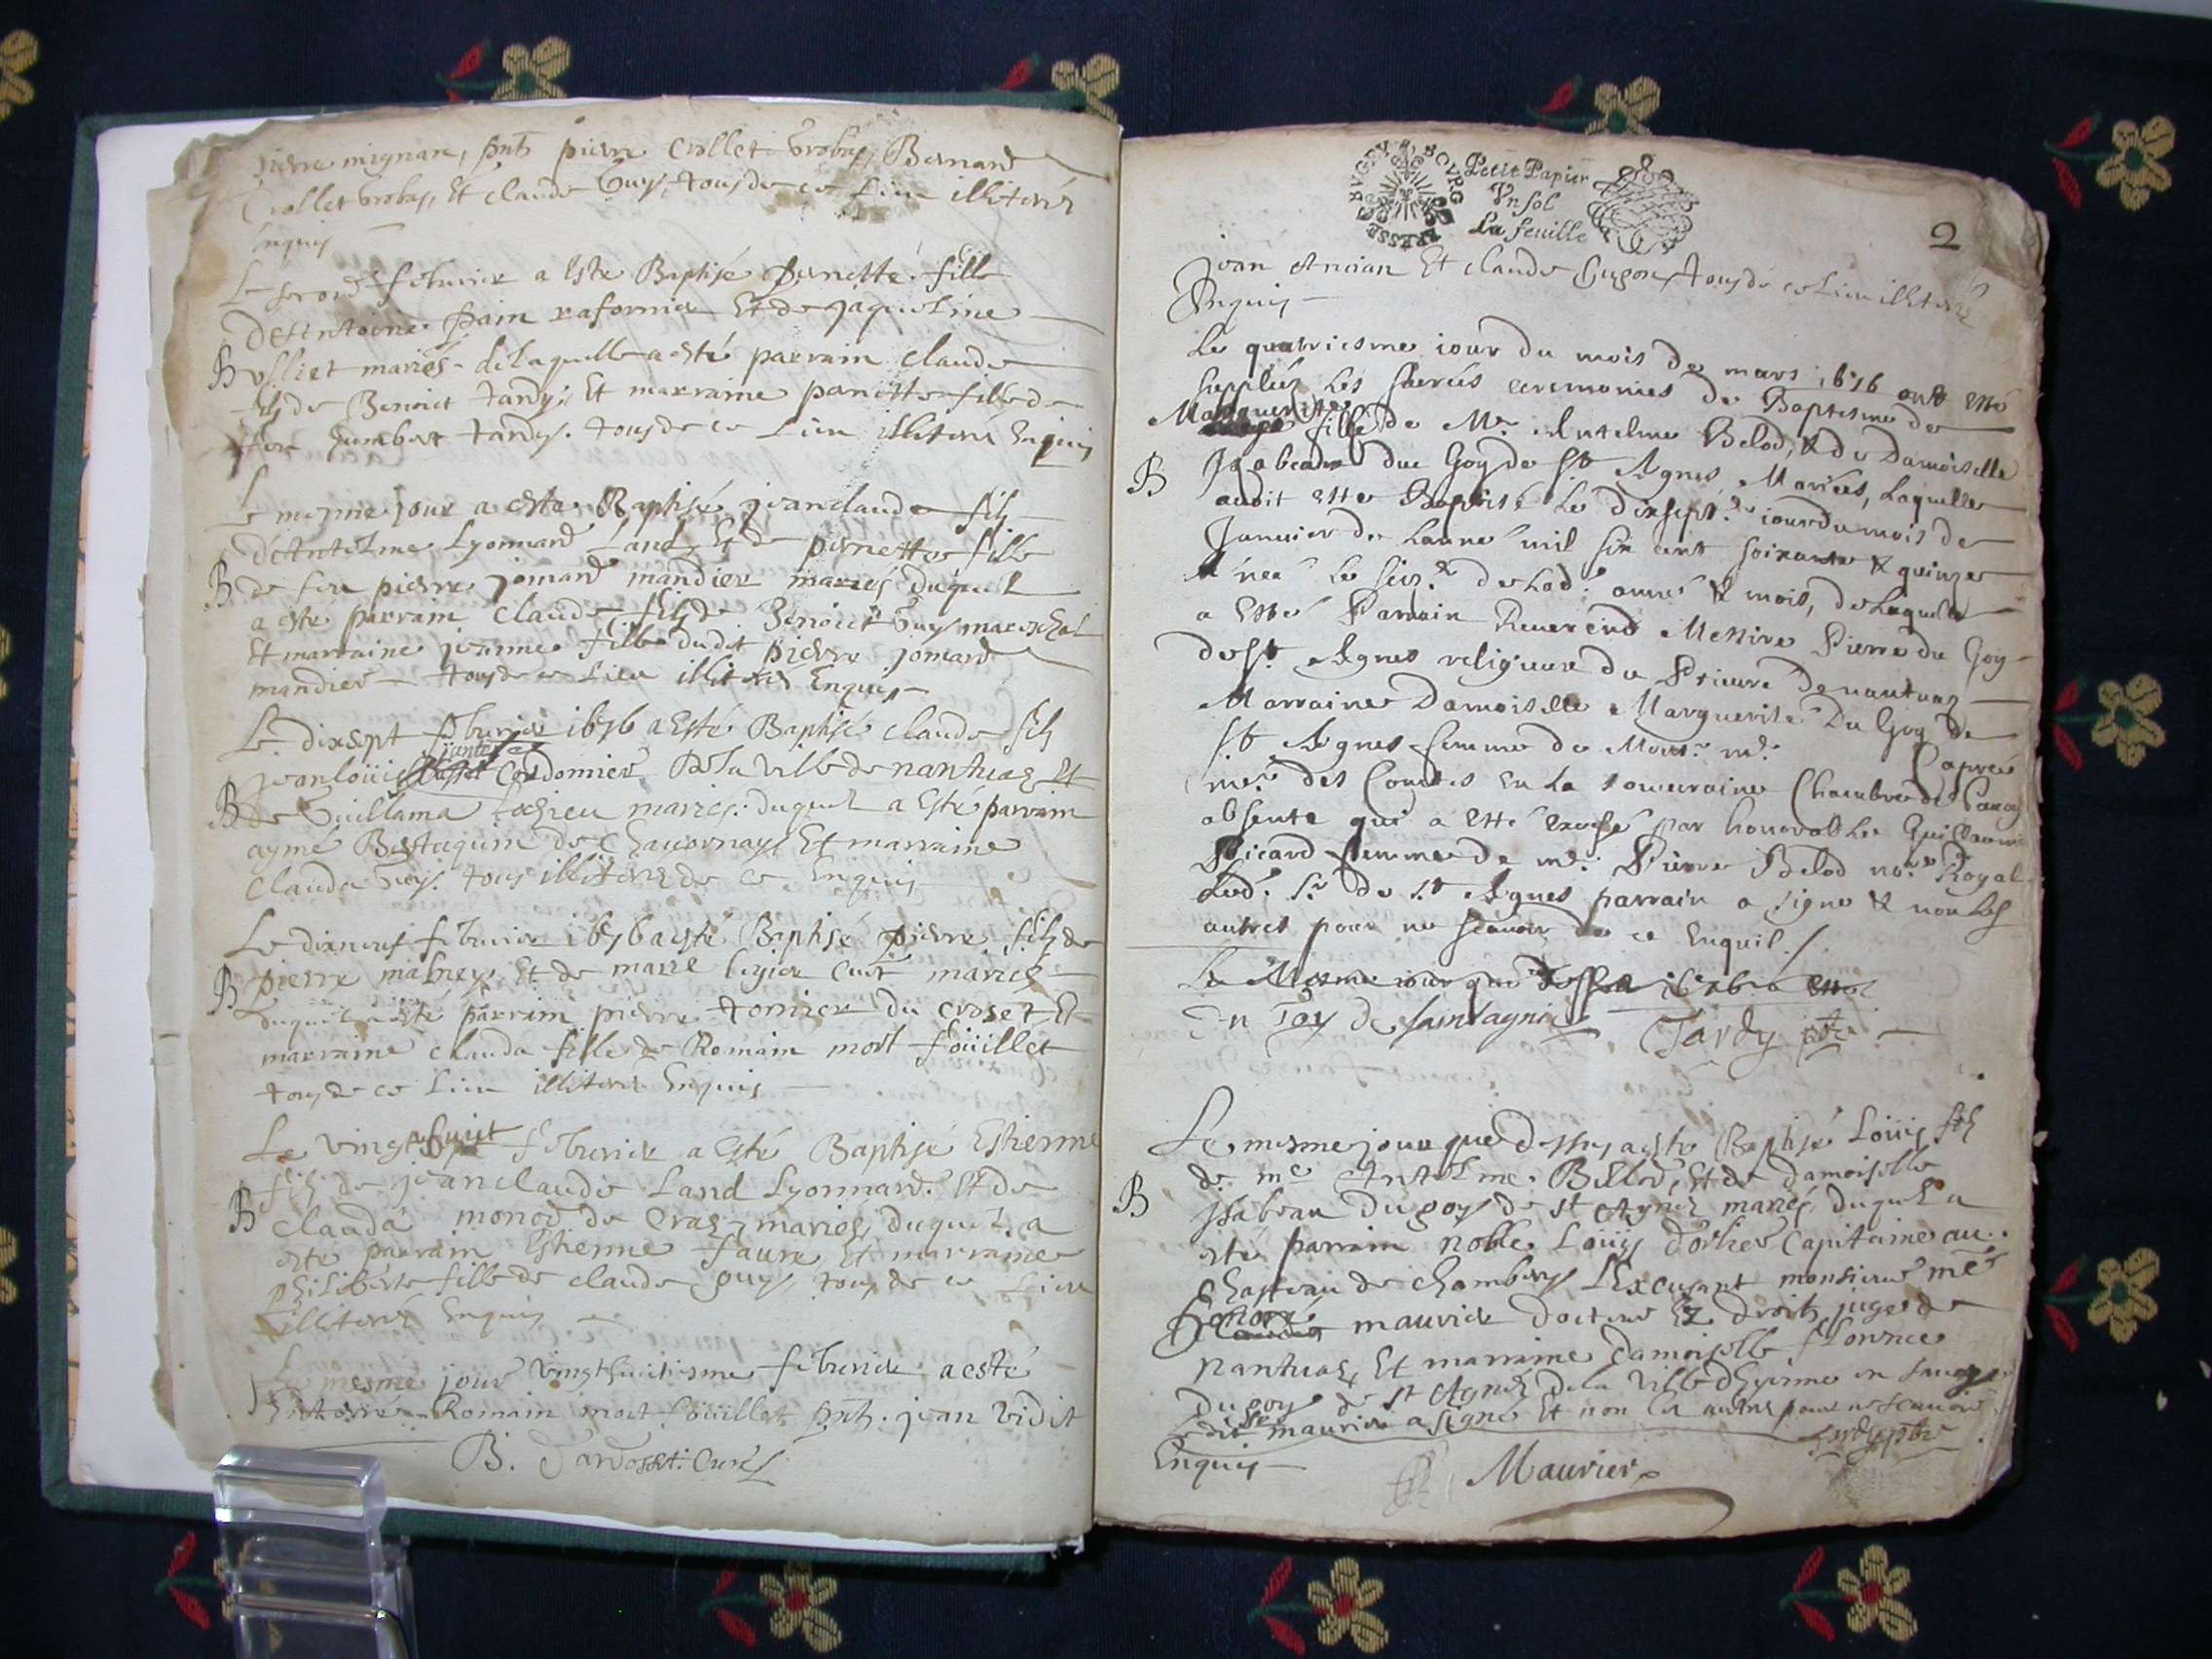 pierre mignare, pnts pierre Crollet brobas, Bernard
Crollet brobas, Et claude Guy, tous de ce Lieu illiterés
Enquis
Le second febvrier a Esté Baptisé pernette fille
D'Antoine pain Et de jaqueline
B mariés de laquelle a esté parrain claude
filz de Benoict tardy, Et marraine pernette fille de
feu humbert tardy. tous de ce Lieu illiterés Enquis
Le mesme jour a esté Baptisé jeanclaude filz
d'Antelme Lyonnard Land, Et de pernette fille
B de feu pierre jomard mandier mariés duquel
a esté parrain claude filz de Benoict Guy mareschal
Et marraine jeanne fille dudit pierre jomard
mandier tous de ce Lieu illiterés Enquis
Le dixsept febvrier 1676 a Esté Baptisé claude filz
jeanlouis Cordonnier De la ville de nantuas Et
B de Guillama mariés. duquel a Esté parrain
aymé de Et marraine
Clauda Guy. tous illiterés de ce Enquis
Le dixneuf febvrier 1676 a esté Baptisé pierre filz de
B pierre malney Et de marie mariés
duquel a esté parrain pierre tornier du croset Et
marraine clauda fille de Romain mort foüillet
tous de ce Lieu illiterés Enquis
Le vingthuit febvrier a Esté Baptisé Estienne
filz de jeanclaude Land Lyonnard. Et de
B Clauda monod de Cras mariés, duquel a
esté parrain Estienne faure Et marraine
philiberte fille de claude guy, tous de ce Lieu
illiterés Enquis
Le mesme jour vingthuitiesme febvrier a esté
Enterré Romain mort foüillet pnts. jean vidit
B. Curé
BOVRG BRESSE BVGEY
Petit Papier
Vn sol
La feuille
2
jean Ancian Et claude Gugon tous de ce Lieu illiterés
Enquis
Le quatriesme jour du mois de mars 1676 ont esté
suppléés les sacrées ceremonies de Baptesme de
Marguerite fille de Mr. Antelme Belod, & de Damoiselle
B Isabeau du Goy de St. Agnes Mariés, Laquelle
auoit esté Baptisé Le dixsept.e jour du mois de
Januier de Lanné mil six cent soixante & quinze
& née le de Lad. anné & mois, de Laquelle
a Esté Parrain Reuerend Messire Pierre du Goy
de St. Agnes religieux du Prieuré de nantuas
Marraine Damoiselle Marguerite Du Goy de
St. Agnes femme de Mons.r m.e Capré
m.e des Comtes En la souueraine Chambre de Sauoy
absente qui a esté excusé par honorable Guillaumi
Picard femme de m.e Pierre Belod no.re Royal
Led. Sr. de St. Agnes parrain a signé & non Les
autres pour ne scauoir de ce Enquis.
Le Mesme jour que dessus 1676 a esté
Du Goy de saintagnes Tardy ptre
Le mesme jour que dessus a esté Baptisé Loüis filz
de. me Antelme. Bellod, Et de damoiselle
B Isabeau du goy de St Agnes mariés, duquel a
esté parrain noble Louis d'orlier Capitaine au
Chasteau de chambery L'Excusant monsieur me
maurier docteur Ez droits, juge de
nantuas, Et marraine damoiselle florence
Du goy de St Agnes de la ville d'Eyenne en sauoye
Ledit Sr maurier a signé Et non les autres pour ne scauoir
Enquis Tardy ptre
Maurier